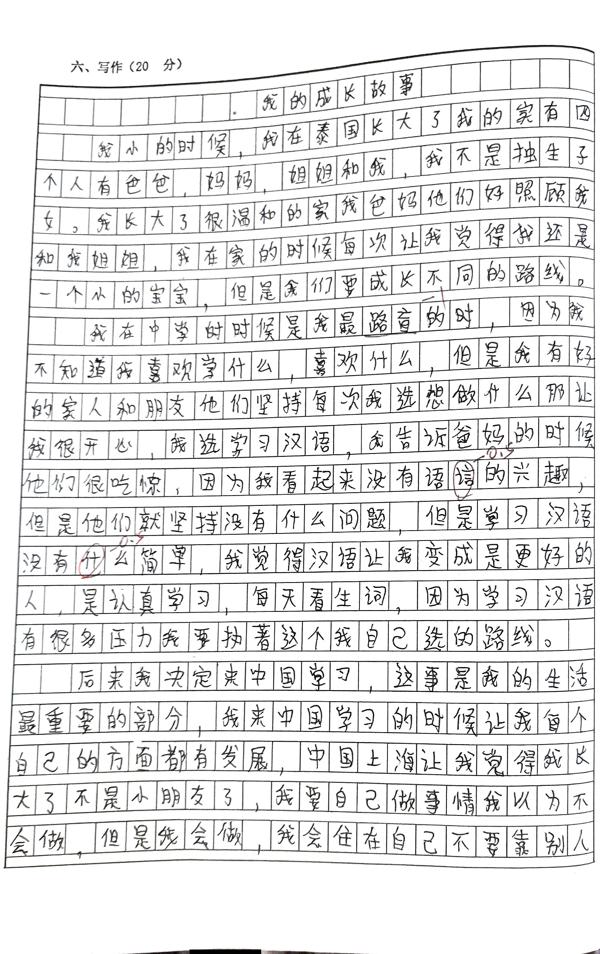 六、写作(20 分)
我的成长故事
我小的时候，我在泰国长大了我的家有四
个人有爸爸，妈妈，姐姐和我，我不是独生子
女。我长大了很温和的家我爸妈他们好照顾我
和我姐姐，我在家的时候每次让我觉得我还是
一个小的宝宝，但是我们要成长不同的路线。
我在中学时时候是我最路盲的时，因为我
不知道我喜欢学什么，喜欢什么，但是我有好
的家人和朋友他们坚持每次我选想做什么那让
我很开心，我选学习汉语，我告诉爸妈的时候
他们很吃惊，因为我看起来没有语言的兴趣，
-0.5
但是他们就坚持没有什么问题，但是学习汉语
没有什么简单，我觉得汉语让我变成是更好的
0.5
人，是认真学习，每天看生词，因为学习汉语
有很多压力我要执著这个我自己选的路线。
后来我决定来中国学习，这事是我的生活
最重要的部分，我来中国学习的时候让我每个
自己的方面都有发展，中国上海让我觉得我长
大了不是小朋友了，我要自己做事情我以为不
会做，但是我会做，我会住在自己不要靠别人